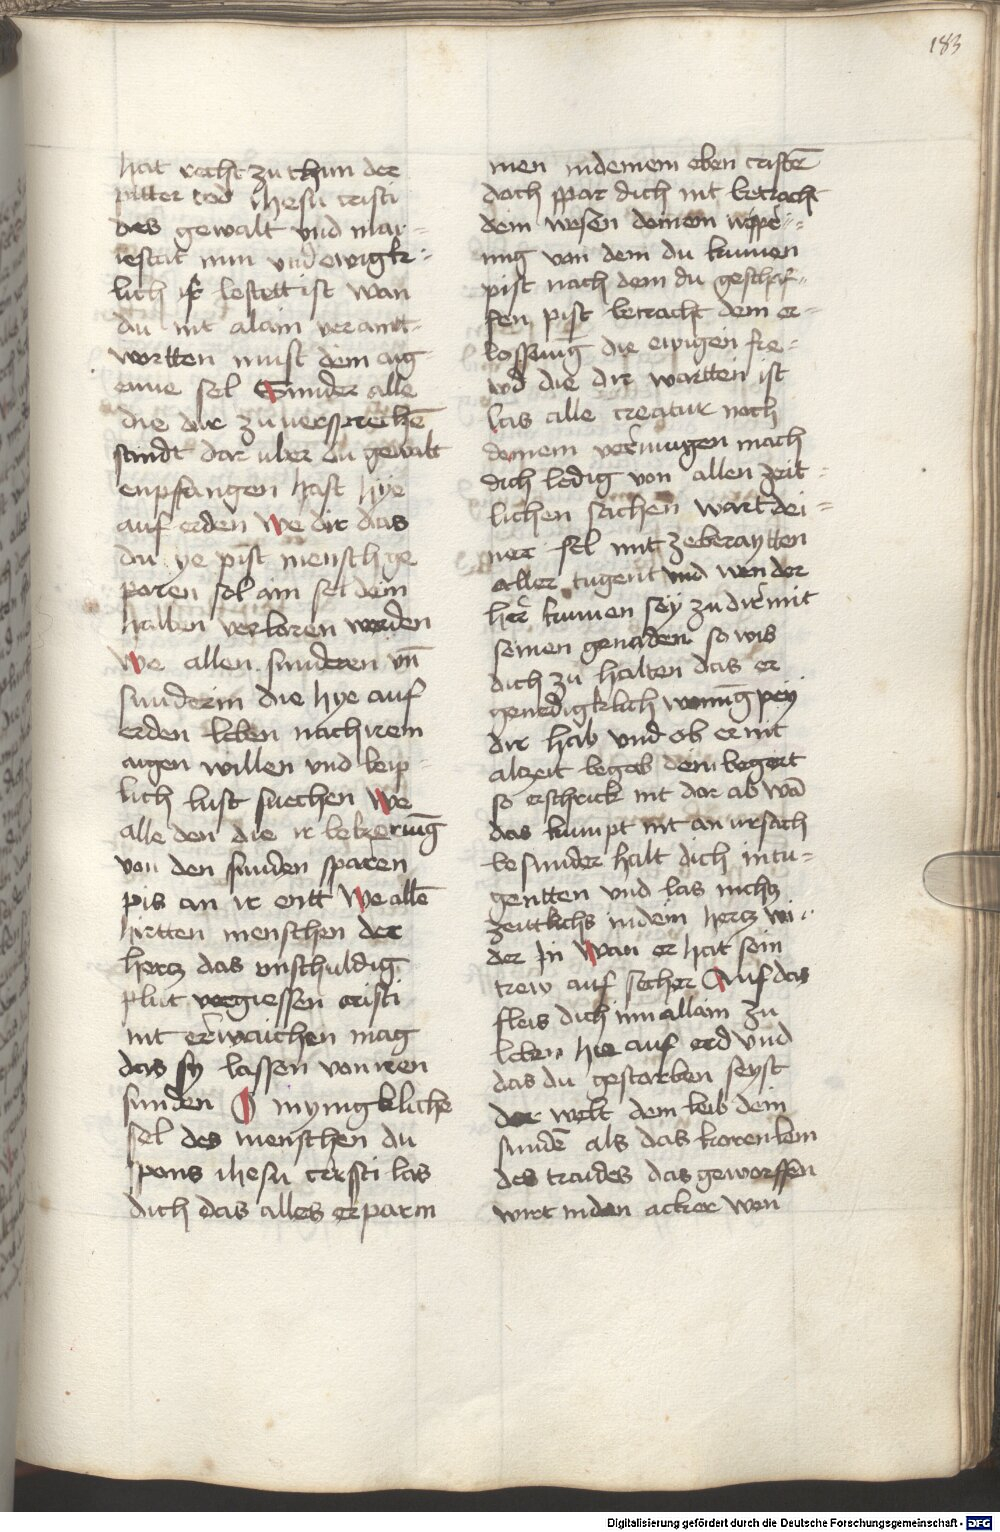 183
hat recht zu thun der
pitter tod Jhesu cristi
des gewalt vnd mai-
iestat nun vnd ewigk-
lich ist bestett ist wan
du nit alain verantt-
wortten must dem aig
enne sel Sunder alle
die dar zu versprechē
sindt dar vber du gewalt
enpfangen hast hye
auf erden we dir das
du ye pist mensch ge
poren sol ain sel dein
halben verloren werden
We allen sunderen vn̄
sunderin die hye auf
erden leben nach irem
aigen willen vnd leip-
lich lust suechen We
alle den die ir bekerunḡ
von den sunden sparen
pis an ir entt We allē
hirtten menschen der
hercz das vnschuldig
plut vergiessen cristi
nit erwaichen mag
das sy lassen von iren
sunden O innyngkliche
sel des menschen du
spons ihesu cristi las
dich das alles erparm
men in deinem eben cristē
doch spar dich nit betracht
dein wesen deinen
ung von dem du kumen
pist nach dem du geschaf-
fen pist betracht dein er-
lossung die ewigen fre-
wd die dir wartten ist
las alle creatur noch
deinem vermugen mach
dich ledig von allen zeit-
lichen sachen wart dei-
ner sel mit zeberaytten
aller tugent vnd wen der
her kumen sey zu dir mit
seinen genaden so wis
dich zu halten das er
genedigklich wonūg pey
dir hab vnd ob er nit
alzeit begob dein begert
so erschrick nit dar ab wā
das kumpt nit an vrsach
besunder halt dich in tu-
gentten vnd las nichcz
zeitlichs in dein hercz wi-
der In Wan er hat sein
trew auf secher Auf das
fleis dich im allain zu
leben hie auf erd vnd
das du gestorben seyst
der welt dem leib dein
sundē als das koren lein
des traides das geworffen
wirt in den acker wen
Digitalisierung gefördert durch die Deutsche Forschungsgemeinschaft - DFG